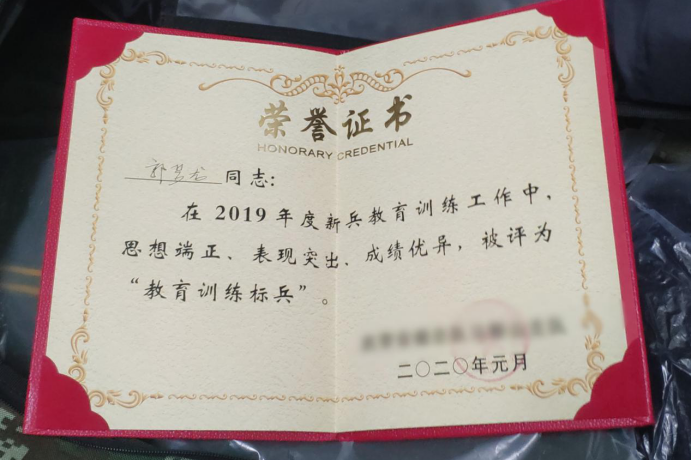 荣誉证书
HONORARY CREDENTIAL
同志:
在 2019 年度新兵教育训练工作中,
思想端正、表现突出、成绩优异,被评为
“教育训练标兵”。
二〇二〇年元月